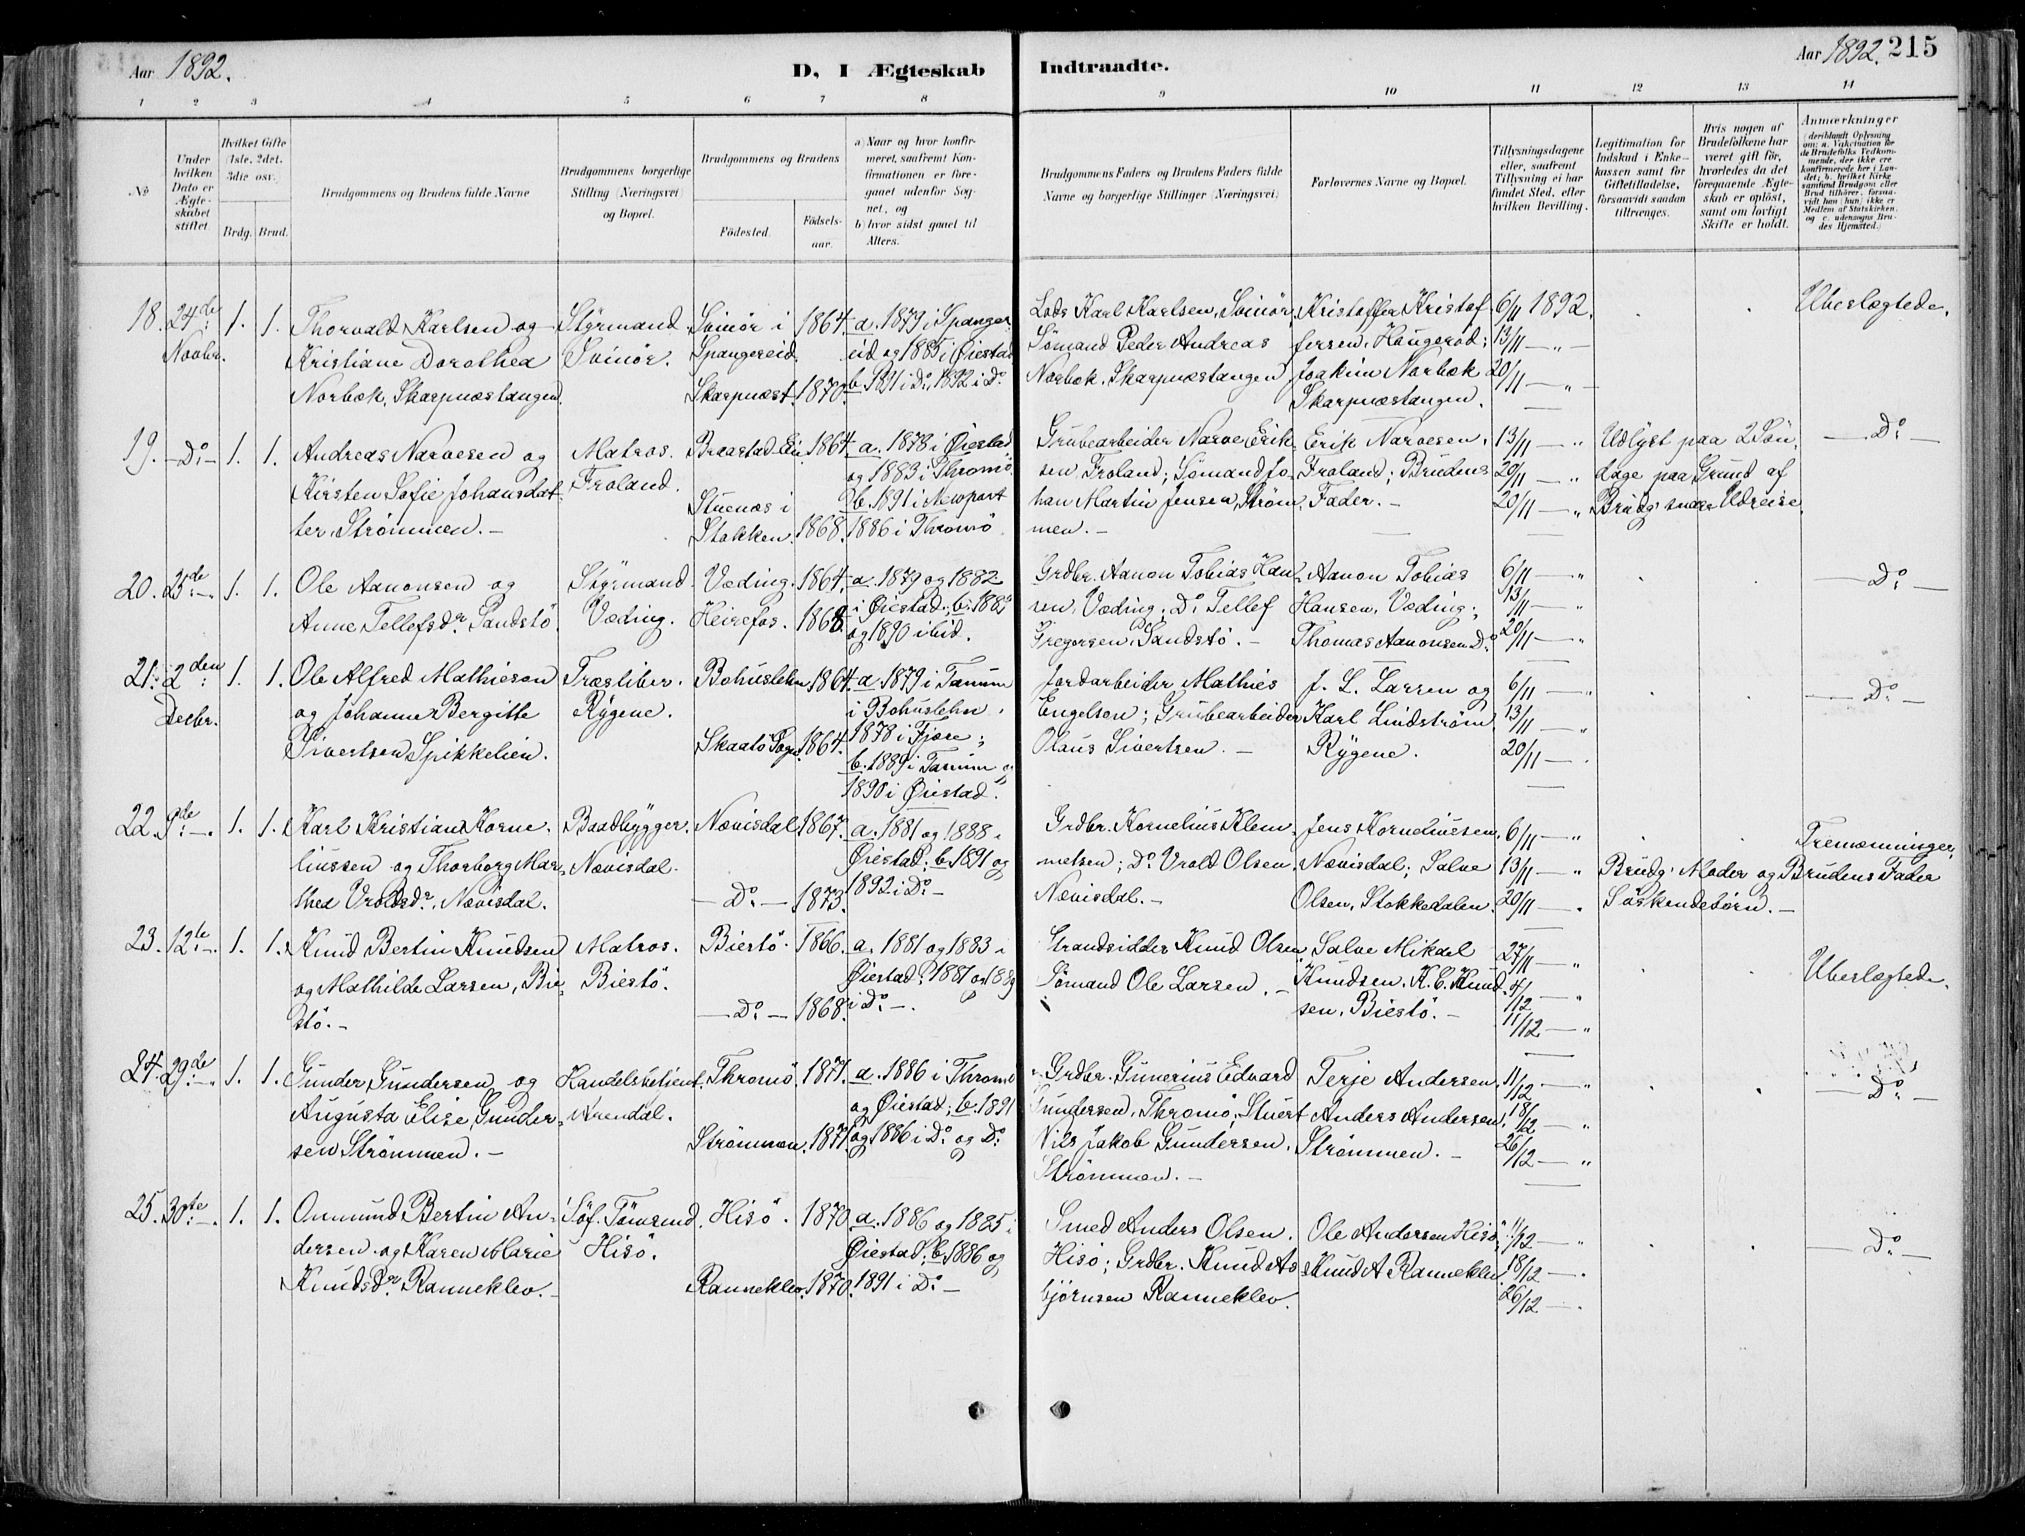 Aar 1892.
D. I Ægteskab Indtraadte.
Aar 1892. 215
1 2 3 4 5 6 7 8 9 10 11 12 13 14
No
Under hvilken Dato er Ægteskabet stiftet.
Hvilket Gifte (1ste, 2det, 3die osv.
Brdg. Brud.
Brudgommens og Brudens fulde Navne
Brudgommens borgerlige Stilling (Næringsvei) og Bopæl.
Brudgommens og Brudens
Födested.
Födselsaar.
a) Naar og hvor konfirmeret, saafremt Konfirmationen er foregaaet udenfor Sognet, og
b) hvor sidst gaaet til Alters.
Brudgommens Faders og Brudens Faders fulde Navne og borgerlige Stillinger (Næringsvei)
Forlovernes Navne og Bopæl.
Tillysningsdagene eller, saafremt Tillysning ei har fundet Sted, efter hvilken Bevilling.
Legitimation for Indskud i Enkekassen samt for Giftetilladelse, forsaavidt saadan tiltrænges.
Hvis nogen af Brudefolkene har været gift för, hvorledes da det foregaaende Ægteskab er oplöst, samt om lovligt Skifte er holdt.
Anmærkninger (deriblandt Oplysning om: a. Vakcination for de Brudefolks Vedkommende, der ikke ere konfirmerede her i Landet; b. hvilket Kirkesamfund Brudgom eller Brud tilhörer, forsaavidt han (hun) ikke er Medlem af Statskirken, og c. udensogns Brudes Hjemsted.)
18. 24de Novbr. 1. 1.
Thorvald Karlsen og
Kristiane Dorothea
Norbæk, Skarpnæstangen.
Styrmand
Svinör.
Svinör i 1864.
Spangereid.
Skarpnæst. 1870.
a. 1879 i Spanger
eid og 1885 i Øiestad
b. 1891 i Do, 1892 i Do.
Lods Karl Karlsen, Svinör,
Sømand Peder Andreas
Norbæk, Skarpnæstangen
Kristoffer Kristof
fersen, Haugerød;
Joakim Norbæk
Skarpnæstangen.
6/11 1892.
13/11 — "
20/11 — "
Ubeslægtede.
19. — Do — 1. 1.
Andreas Narvesen og
Kirsten Sofie Johansdat
ter, Strömmen. —
Matros.
Froland.
Braastad-Ei 1864.
Stuenæs i
Stokken. 1868.
a. 1878 i Øiestad
og 1883 i Thromö.
b. 1891 i Newport
1886 i Thromö
Grubearbeider Narve Erik
sen, Froland; Sømand Jo
han Martin Jensen, Ström
men. —
Erik Narvesen,
Froland; Brudens
Fader. —
13/11 — "
20/11 — "
20/11 — "
Udlyst paa 2 Søn
dage paa Grund af
Brudg. snare Udreise.
— Do —
20. 25de — 1. 1.
Ole Aanonsen og
Anne Tellefsdr Sandstö.
Styrmand
Væding.
Væding. 1864.
Heirefos. 1868.
a. 1879 og 1882
i Øiestad; b. 1882
og 1890 ibid.
Grdbr. Aanon Tobias Han
sen, Væding; Do Tellef
Gregersen, Sandstö. —
Aanon Tobias
Hansen, Væding;
Thomas Aanonsen Do
6/11 — "
13/11 — "
20/11 — "
— Do —
21. 2den Decbr. 1. 1.
Ole Alfred Mathieson
og Johanne Bergitte
Sivertsen Spikkelien.
Træsliber.
Rygene.
Bohuslehn 1864.
Skaatö Sogn. 1864.
a 1879 i Tanum
i Bohuslehn,
1878 i Fjære;
b. 1889 i Tanum og
1890 i Øiestad.
Jordarbeider Mathies
Engelson; Grubearbeider
Olaus Sivertsen. —
J. L. Larsen og
Karl Lindström
Rygene.
6/11 — "
13/11 — "
20/11 — "
— Do —
22. 9de — 1. 1.
Karl Kristian Korne
liussen og Thorborg Mar
thea Vroldsdr, Nævisdal.
Baadbygger.
Nævisdal.
Nævisdal 1867.
— Do — 1873.
a. 1881 og 1888 i
Øiestad; b. 1891 og
1892 i Do —
Grdbr. Kornelius Klem
metsen; Do Vrold Olsen
Nævisdal. —
Jens Korneliussen,
Nævisdal; Salve
Olsen, Stokkedalen.
6/11 — "
13/11 — "
20/11 — "
Tremænninger,
Brudg. Moder og Brudens Fader
Söskendebörn. —
23. 12te — 1. 1.
Knud Bertin Knudsen
og Mathilde Larsen, Bie
stö. —
Matros.
Biestö.
Biestö. 1866.
— Do — 1868.
a. 1881 og 1883 i
Øiestad; b. 1881 og 1889
i Do —.
Strandsidder Knud Olsen
Sømand Ole Larsen. —
Salve Mikael
Knudsen, K. C. Knud
sen, Biestö. —
27/11 — "
4/12 — "
11/12 — "
Ubeslægtede.
24. 29de — 1. 1.
Gunder Gundersen og
Augusta Elise Gunder
sen Strömmen. —
Handelsbetient.
Arendal.
Thromö. 1871.
Strömmen. 1871.
a. 1886 i Thromö
og Øiestad; b. 1891
og 1886 i Do og Do
Grdbr. Gunerius Edvard
Gundersen, Thromö; Stuert
Nils Jakob Gundersen,
Strömmen. —
Terje Andersen,
Anders Andersen,
Strömmen. —
11/12 — "
18/12 — "
26/12 — "
— Do —
25. 30te — 1. 1.
Onmund Bertin An
dersen og Karen Marie
Knudsdr Ranneklev. —
Söf. Tömrmd.
Hisö.
Hisö. 1870
Ranneklev. 1870.
a. 1886 og 1885 i
Øiestad; b. 1886 og
1891 i Do —
Smed Anders Olsen,
Hisö; Grdbr. Knud As
björnsen Ranneklev.
Ole Andersen Hisö;
Knud A Ranneklev.
11/12 — "
18/12 — "
26/12 — "
— Do —